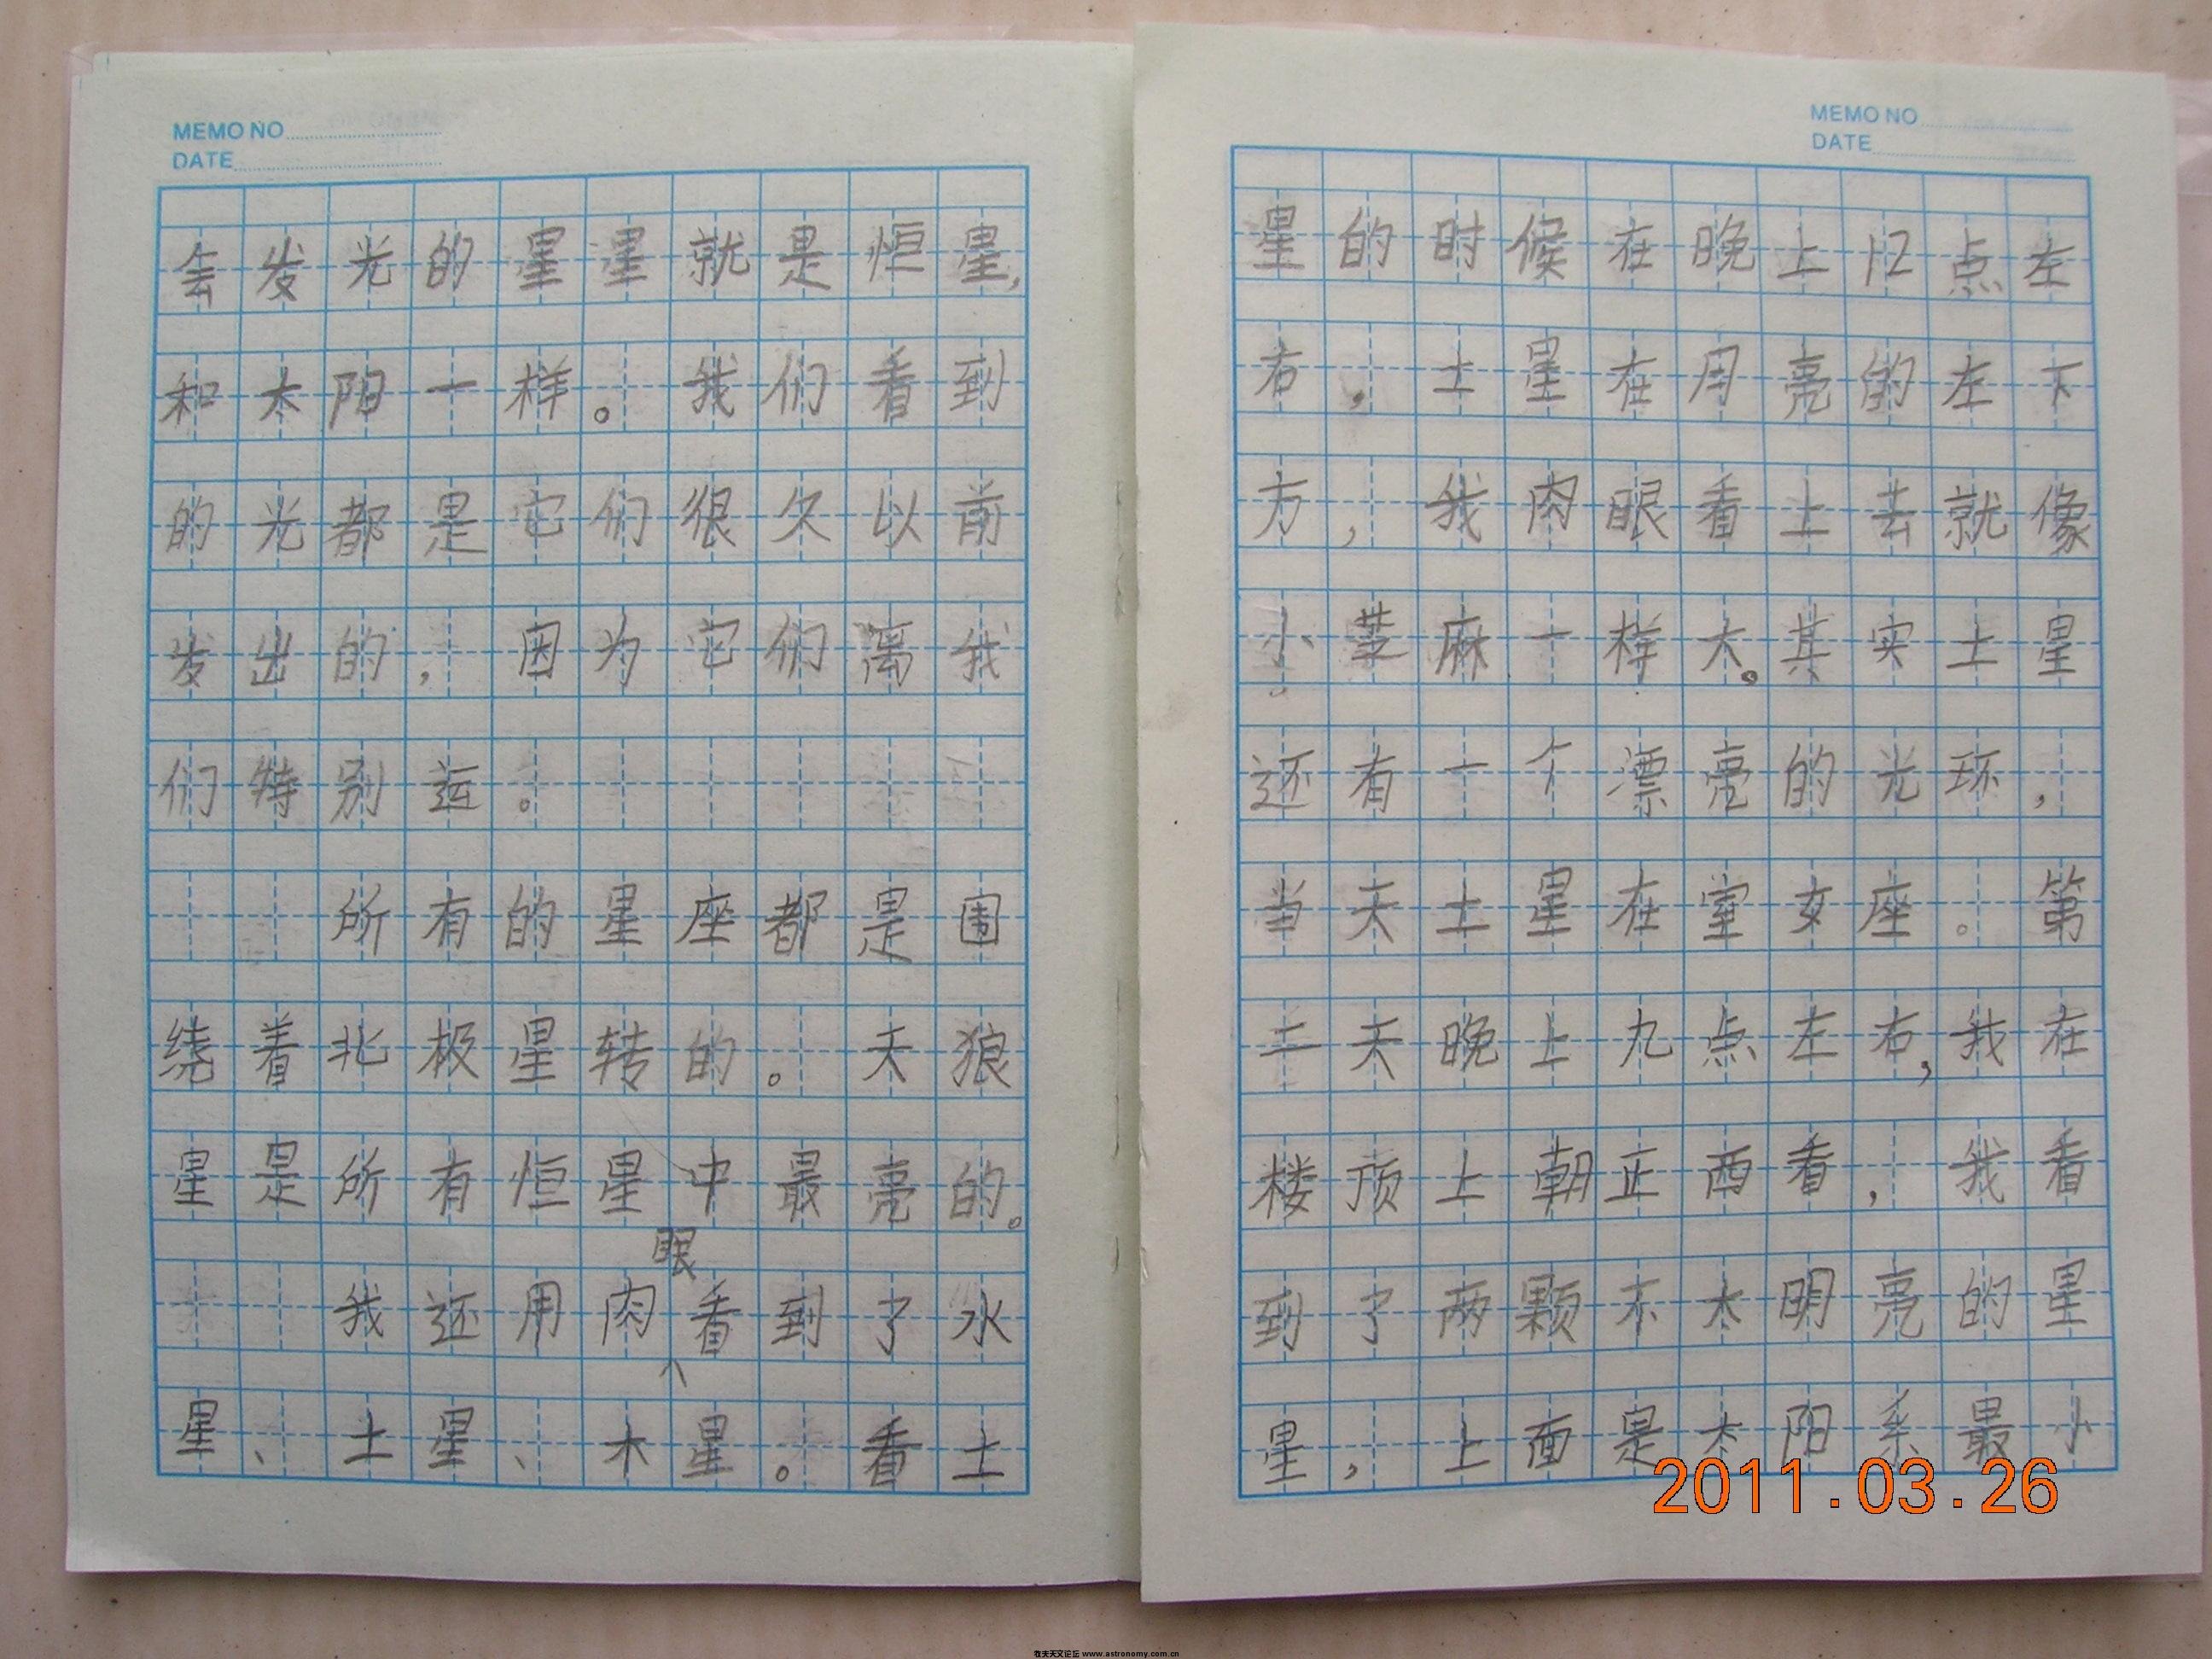 MEMO NO
DATE
会发光的星星就是恒星,
和太阳一样。我们看到
的光都是它们很久以前
发出的,因为它们离我
们特别远。
所有的星座都是围
绕着北极星转的。天狼
星是所有恒星中最亮的。
我还用肉眼看到了水
星、土星、木星。看土
MEMO NO
DATE
星的时候在晚上12点左
右,土星在月亮的左下
方,我肉眼看上去就像
小芝麻一样大。其实土星
还有一个漂亮的光环,
当天土星在室女座。第
二天晚上九点左右,我在
楼顶上朝正西看,我看
到了两颗不太明亮的星
星,上面是太阳系最小
2011.03.26
牧夫天文论坛 www.astronomy.com.cn